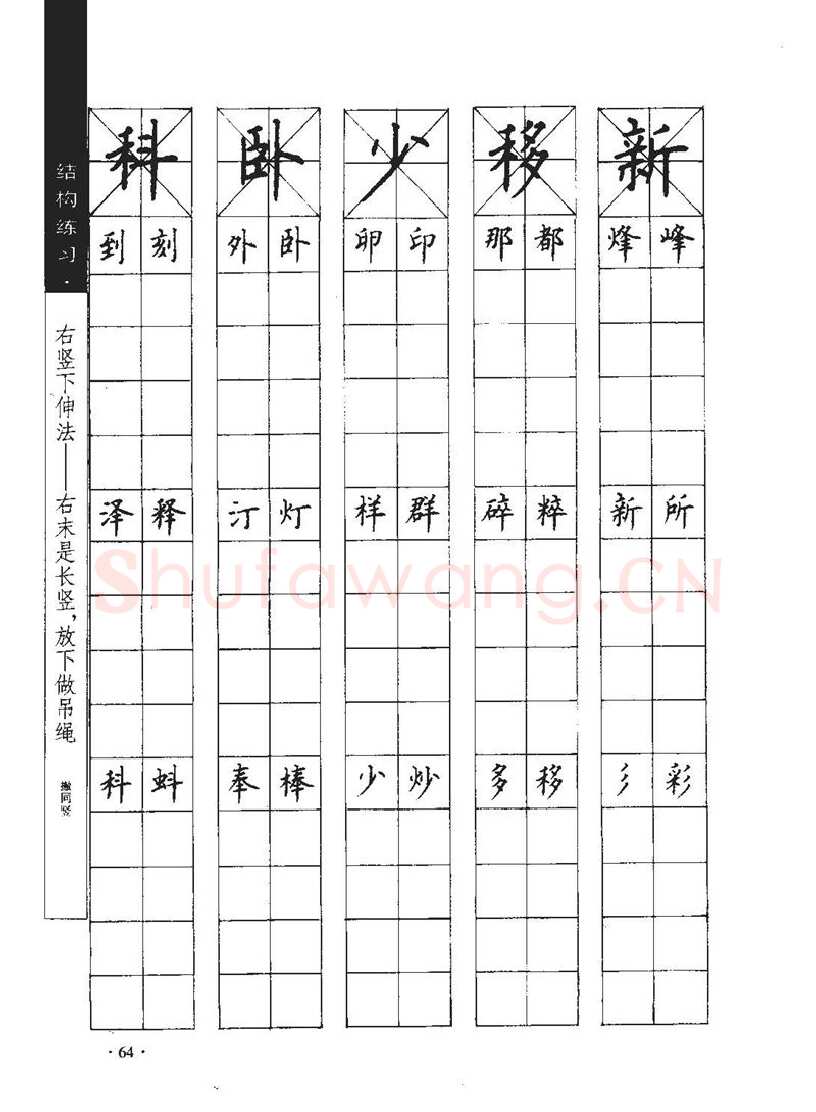 结构练习·
右竖下伸法——右末是长竖，放下做吊绳
撇同竖
科 卧 少 移 新
到 刻 外 卧 卵 印 那 都 烽 峰
泽 释 汀 灯 样 群 碎 粹 新 所
shufawang.CN
科 蚪 奉 棒 少 炒 多 移 彡 彩
·64·